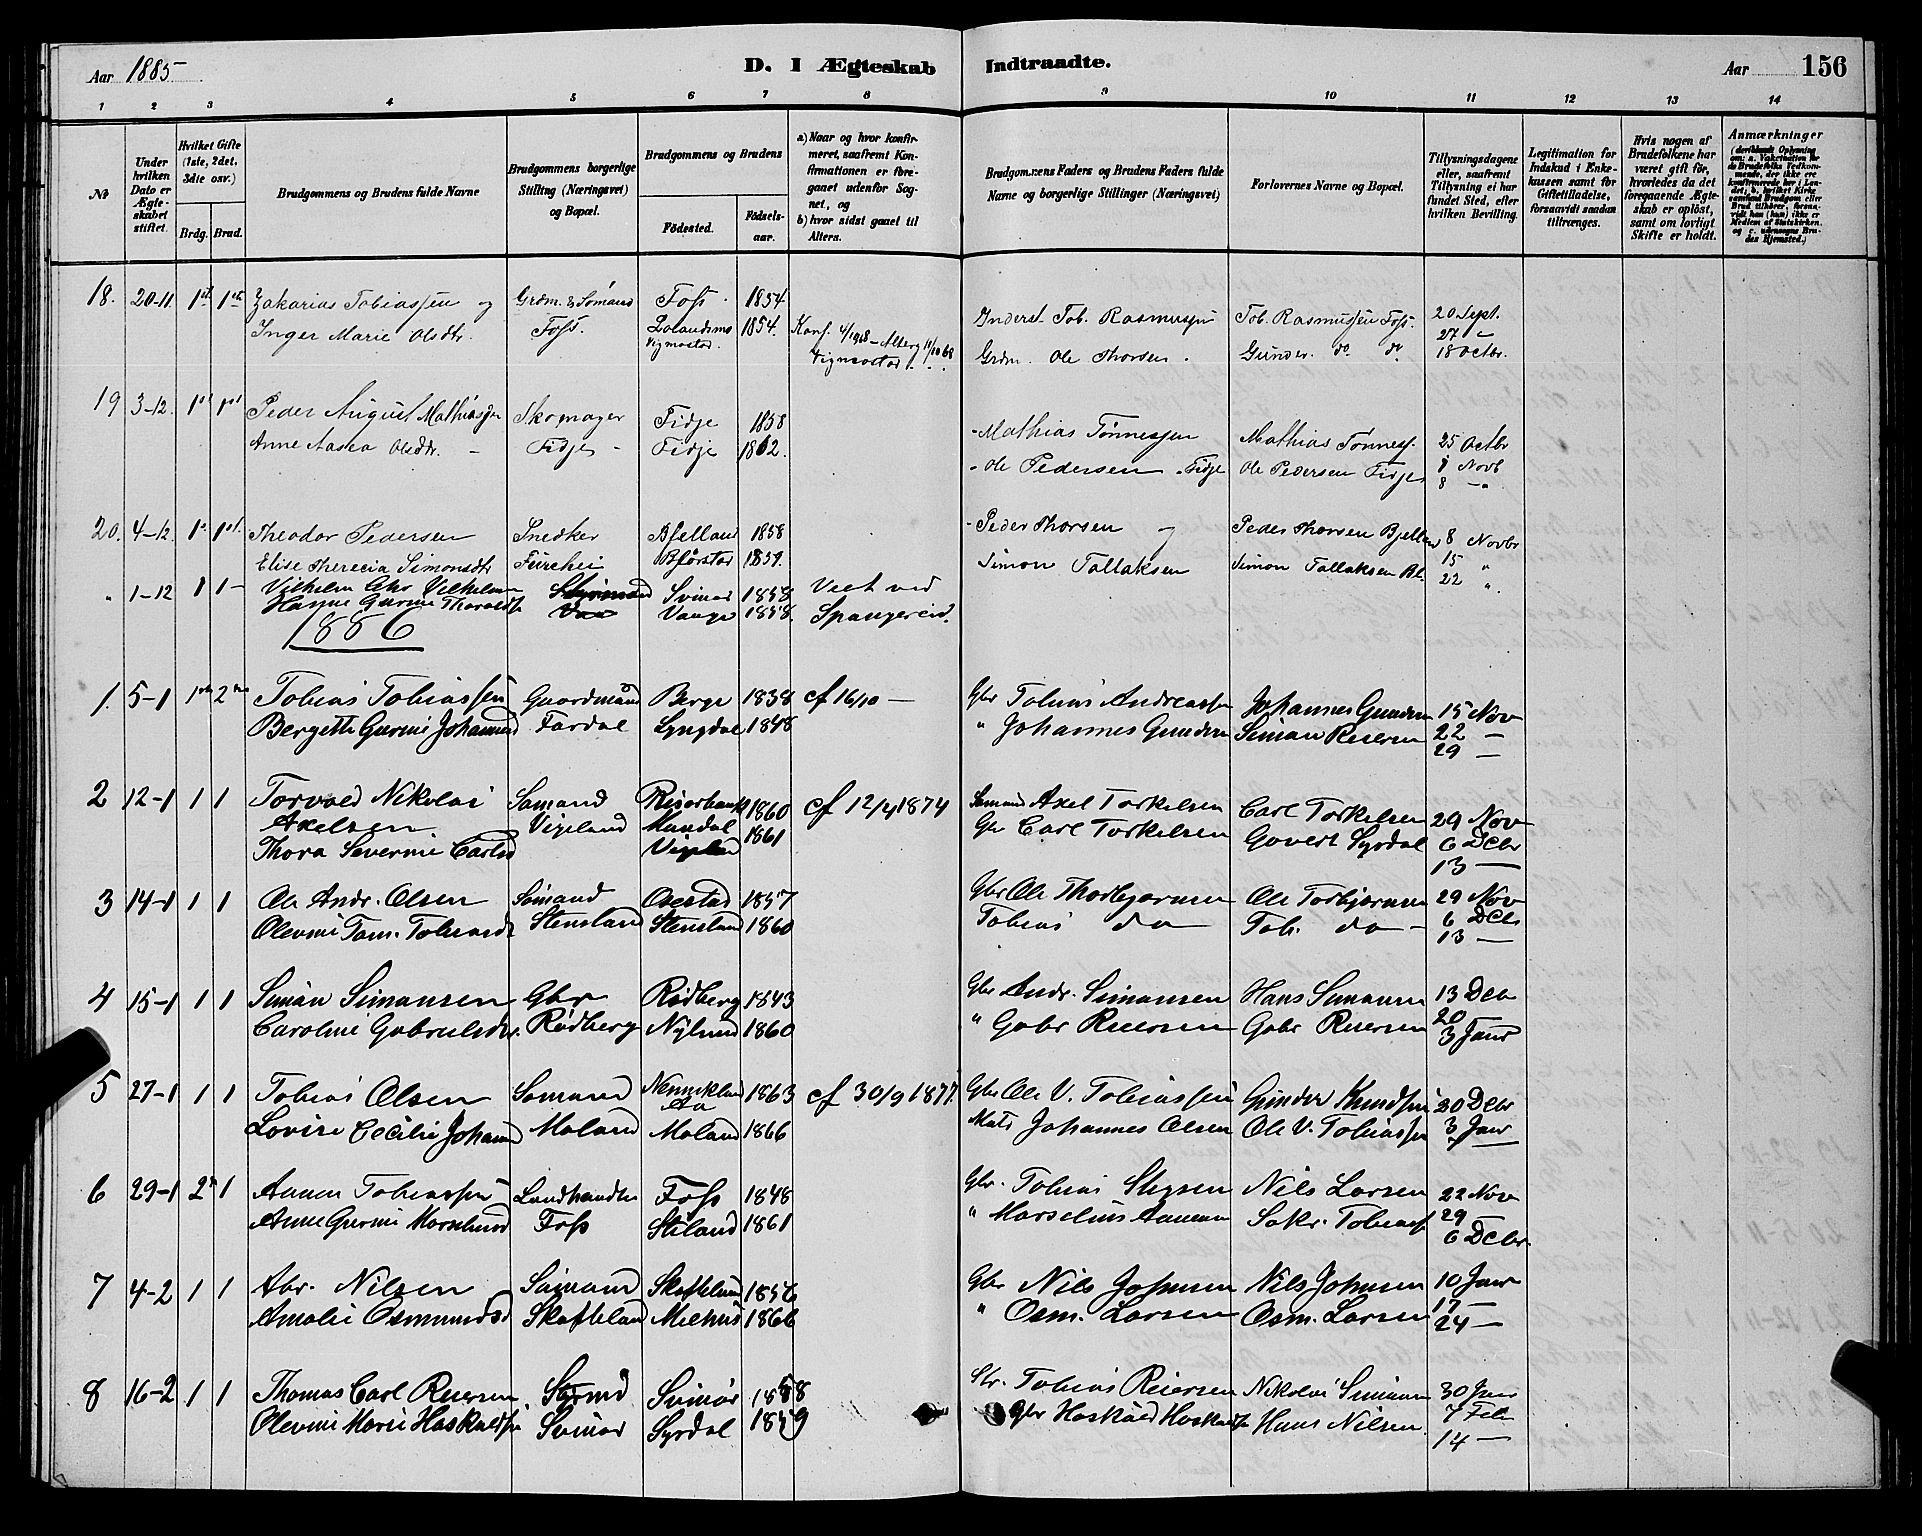 Aar 1885
D. I Ægteskab Indtraadte.
Aar 156
1 2 3 4 5 6 7 8 9 10 11 12 13 14
№
Under hvilken Dato er Ægteskabet stiftet.
Hvilket Gifte (1ste, 2det, 3die osv.)
Brdg. Brud.
Brudgommens og Brudens fulde Navne
Brudgommens borgerlige Stilling (Næringsvei) og Bopæl.
Brudgommens og Brudens
Fødested. Fødselsaar.
a) Naar og hvor konfirmeret, saafremt Konfirmationen er foregaaet udenfor Sognet, og
b) hvor sidst gaaet til Alters.
Brudgommens Faders og Brudens Faders fulde Navne og borgerlige Stillinger (Næringsvei)
Forlovernes Navne og Bopæl.
Tillysningsdagene eller, saafremt Tillysning ei har fundet Sted, efter hvilken Bevilling.
Legitimation for Indskud i Enkekassen samt for Giftetilladelse, forsaavidt saadan tiltrænges.
Hvis nogen af Brudefolkene har været gift før, hvorledes da det foregaaende Ægteskab er opløst, samt om lovligt Skifte er holdt.
Anmærkninger
18. 20-11 1st 1ste Zakarias Tobiassen og Grdm. & Sømand Foss 1854 Inderst Tob. Rasmussen Tob. Rasmussen Foss. 20 Sept.
Inger Marie Olsdtr. Foss. Vigmostad. 1854. Konf. Vigmostad Grdm. Ole Thorsen. Gunder do do 27 " 18 Octbr.
19 3-12. 1st 1st Peder August Mathiassen Skomager Fidje 1858 Mathias Tønnessen Mathias Tønness. 25 Octbr
Anne Aasta Olsdtr. Fidje Fidje 1862. Ole Pedersen Fidje Ole Pedersen Fidje Novb 8 "
20. 4-12. 1st. Theodor Pedersen Snedker Bjelland 1858 Peder Thorsen Peder Thorsen Bjelland 8 Novbr
Elise Therecia Simonsdtr Bjørstad 1859. Simon Tallaksen Simon Tallaksen 15 " 22 "
" 1-12 1 1 Vilhelm Chr Vilhelmsen Styrmand Svinør 1858 Viet ved
Hanne Gurine Vaage 1858. Spangereid.
1886
1. 5-1 1ste 2den Tobias Tobiassen Gaardmand Berge 1838 cf 16/10 — Gbr Tobias Andreassen Johannes Gundersen 15 Nov
Bergette Gurine Johannesd Fardal Lyngdal 1848 " Johannes Gundersen Simon Reiersen 22 — 29 —
2 12-1 1 1 Torvald Nikolai Axelsen Sømand Risørbank 1860 cf 12/4 1874 Sømand Axel Torkelsen Carl Torkelsen 29 Nov
Thora Severine Carlsd Vigeland Mandal Vigeland 1861 Gbr Carl Torkelsen Govert Syrdal 6 Dcbr 13 —
3 14-1 1 1 Ole Andr. Olsen Sømand Osestad 1857 Gbr Ole Thorbjørnsen Ole Torbjørnsen 29 Nov
Olevine Tom. Tobiasdtr Stensland Stensland 1860 Tobias do Tob. do — 6 Dcbr 13 —
4 15-1 1 1 Simon Simonsen Gbr Rødberg 1843 Gbr Andr. Simonsen Hans Simonsen 13 Dcbr
Caroline Gabrielsdtr. Rødberg Nylund 1860 " Gabr Reiersen Gabr Reiersen 20 — 3 Janr
5 27-1 1 1 Tobias Olsen Sømand Aa 1863 cf 30/9 1877. Gbr Ole V. Tobiassen Gunder Knudsen 20 Dcbr
Lovise Cecilie Johannesd Moland Moland 1866 Johannes Olsen Ole V. Tobiassen 3 Janr
6 29-1 2 1 Aanen Tobiassen Landhandler Foss 1848 Gbr. Tobias Stigsen Nils Larsen 22 Nov
Anne Gurine Foss Stiland 1861 " Marselius Aanensen Sakr. Tobiass 29 6 Dcbr.
7 4-2 1 1 Abr. Nilsen Sømand Skofteland 1856 Gbr Nils Johnsen Nils Johnsen 10 Janr
Amalie Osmundsd Skofteland Melhus 1866 " Osm. Larsen Osm. Larsen 17 — 24 —
8 16-2 1 1 Thomas Carl Reiersen Styrmd Svinør 1858 Str. Tobias Reiersen Nikolai Simonsen 30 Janr
Olevine Marie Haskaldsen Svinør Syrdal 1859 Gbr Haskald Haskaldsen Hans Nilsen 7 Feb 14 —